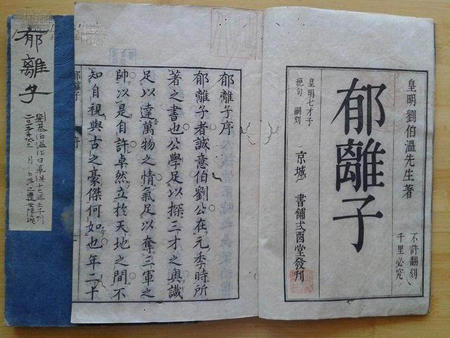 皇明劉伯溫先生著
不許翻刻
千里必究
郁離子
皇明七才子
京城 書鋪式酉堂發刊
郁離子序
郁離子者誠意伯劉公在元季時所
著之書也公學足以探三才之奧識
足以達萬物之情氣足以奪三軍之
帥以是自許卓然立於天地之間不
知自視與古之豪傑何如也年二十
郁離子